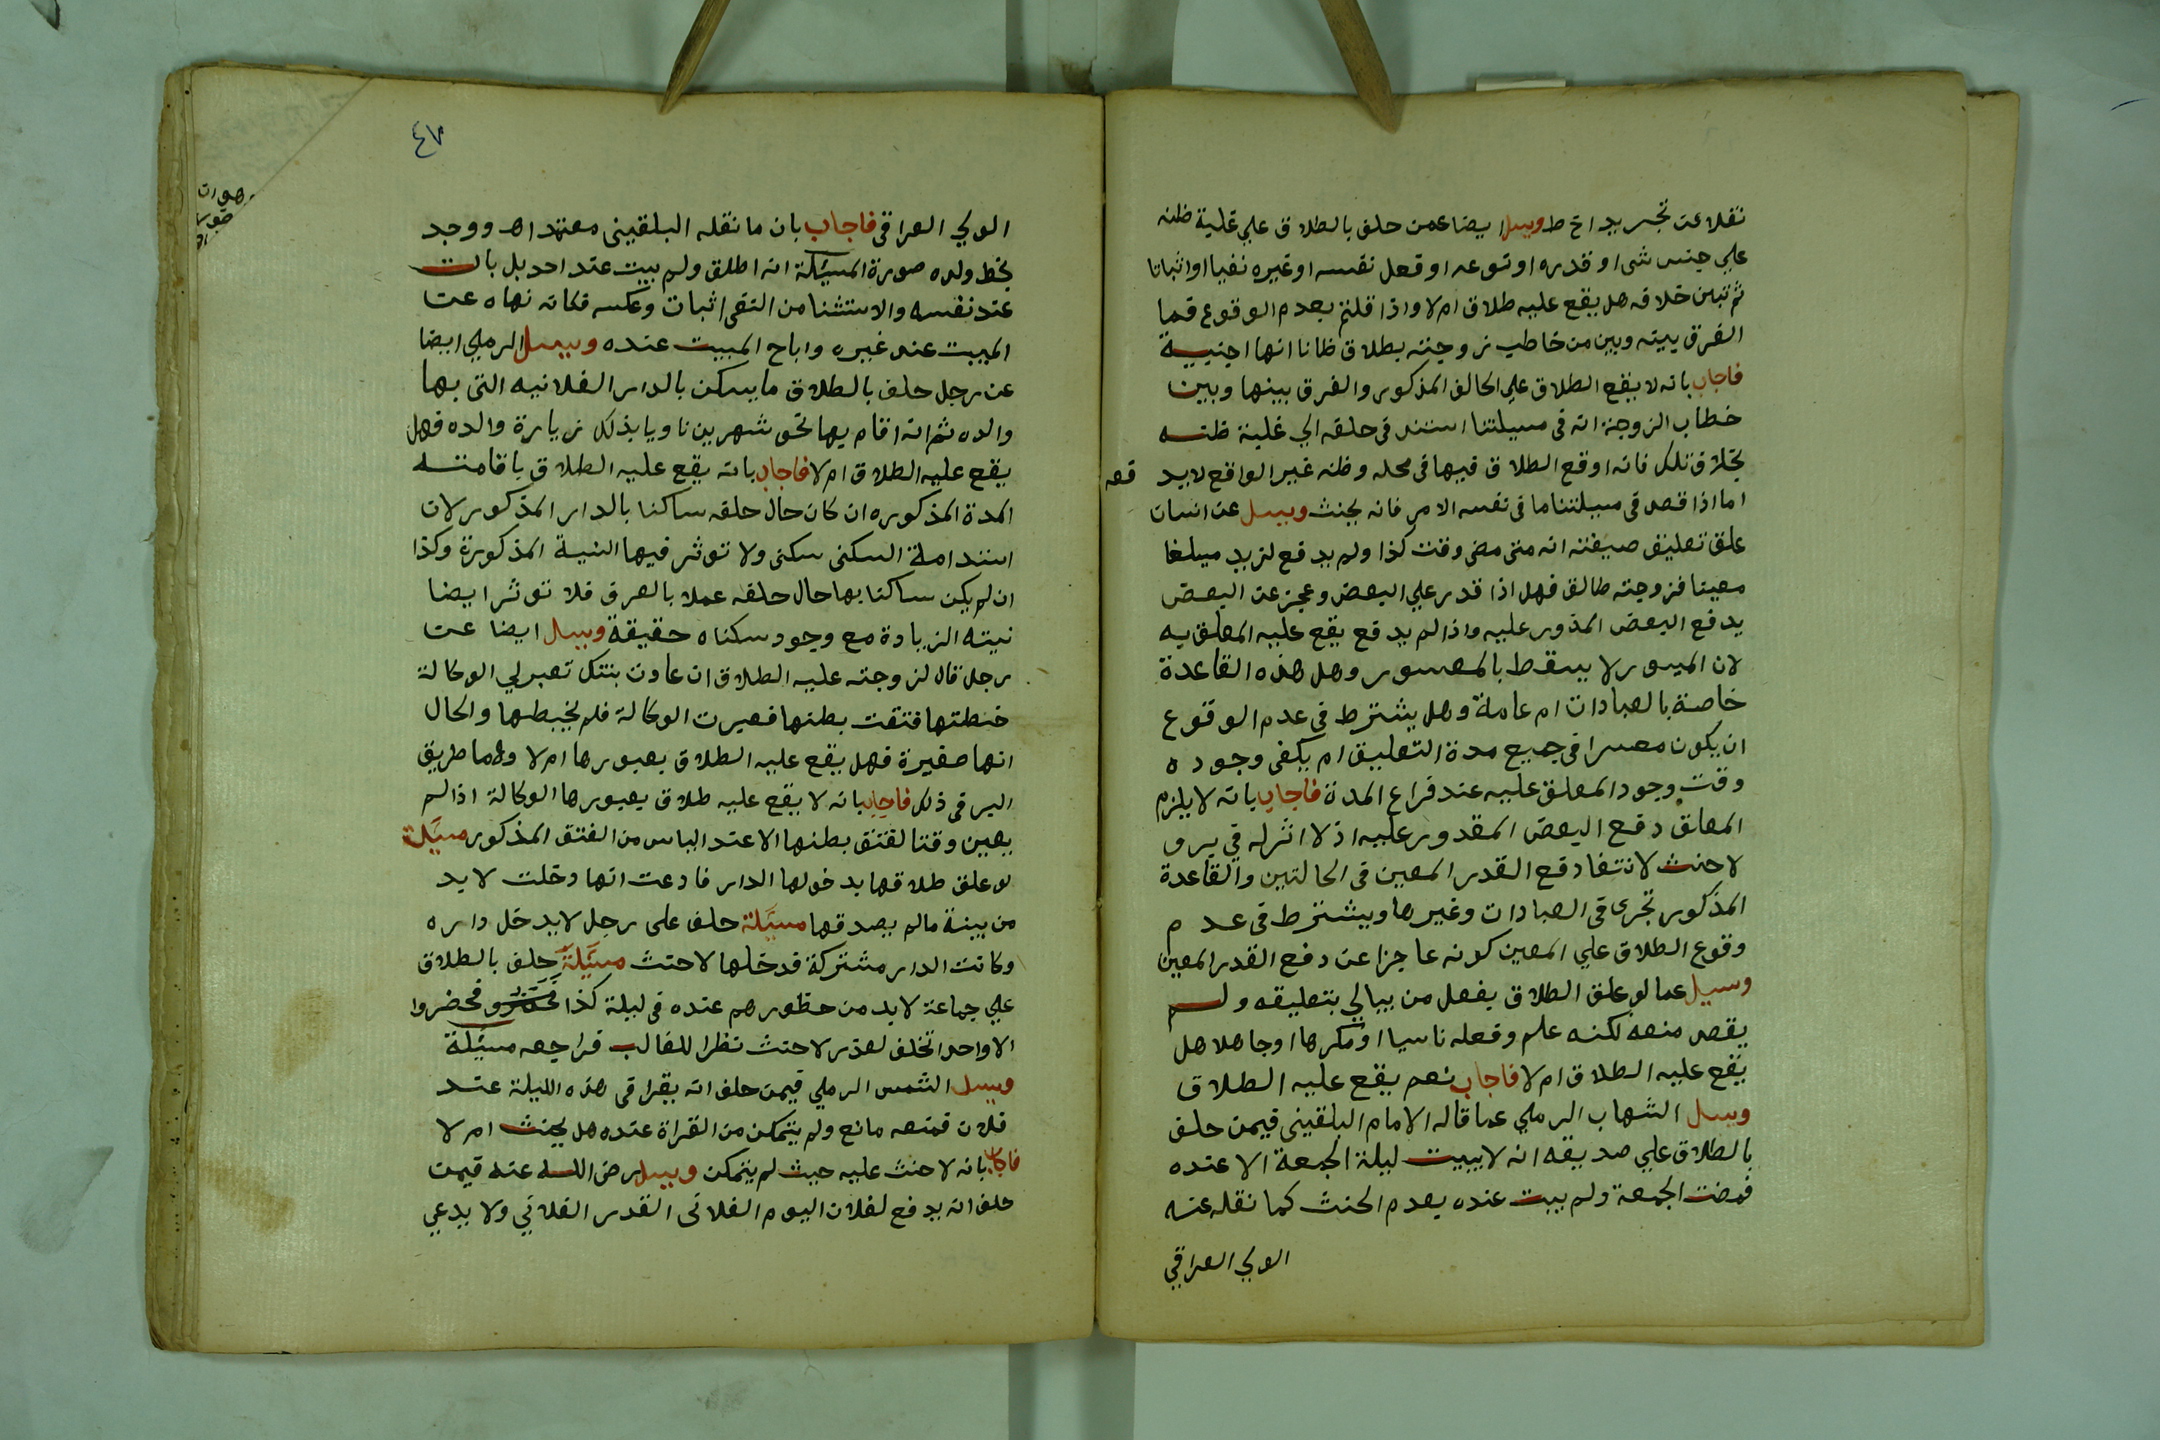 نقلا عن تجريد اخ ط وسيل ايضا عمن حلف بالطلاق علي غلبة ظنه
علي جنس شي او قدره او نوعه او فعل نفسه او غيره نفيا او اثباتا
ثم تبين خلافه هل يقع عليه طلاق ام لا واذا قلتم بعدم الوقوع فما
الفرق بينه وبين من خاطب زوجته بطلاق ظانا انها اجنبية
فاجاب بانه لا يقع الطلاق علي الحالف المذكور والفرق بينها وبين
خطاب الزوجة انه في مسيلتنا استند في حلفه الي غلبة ظنه
بخلاف تلك فانه اوقع الطلاق فيها في محله وظنه غير الواقع لا يد
فعه
اما اذا قصد في مسيلتنا ما في نفس الامر فانه يحنث وسيل عن انسان
علق تعليق صيغته انه متي مضي وقت كذا ولم يدفع لزيد مبلغا
معينا فزوجته طالق فهل اذا قدر علي البعض وعجز عن البعض
يدفع البعض المذور عليه واذا لم يدفع يقع عليه المعلق به
لان الميسور لا يسقط بالمعسور وهل هذه القاعدة
خاصة بالعبادات ام عامة وهل يشترط في عدم الوقوع
ان يكون معسرا في جميع مدة التعليق ام يكفي وجوده
وقت وجود المعلق عليه عند فراغ المدة فاجاب بانه لا يلزم
المعلق دفع البعض المقدور عليه اذ لا اثر له في بر و
لا حنث لانتفا دفع القدر المعين في الحالتين والقاعدة
المذكور تجري في العبادات وغيرها ويشترط في عدم
وقوع الطلاق علي المعين كونه عاجزا عن دفع القدر المعين
وسيل عما لو علق الطلاق بفعل من يبالي بتعليقه ولم
يقصد منعه لكنه علم وفعله ناسيا او مكرها او جاهلا هل
يقع عليه الطلاق ام لا فاجاب نعم يقع عليه الطلاق
وسيل الشهاب الرملي عما قاله الامام البلقيني فيمن حلف
بالطلاق علي صديقه انه لا يبيت ليلة الجمعة الا عنده
فمضت الجمعة ولم يبت عنده بعدم الحنث كما نقله عنه
الولي العراقي
٤٧
الولي العراقي فاجاب بان ما نقله البلقيني معتمد اهـ ووجد
بخط ولده صورة المسئلة انه اطلق ولم يبيت عند احد بل بات
عند نفسه والاستثنا من النفي اثبات وعكسه فكانه نهاه عن
المبيت عند غيره واباح المبيت عنده وسيل الرملي ايضا
عن رجل حلف بالطلاق ما يسكن بالدار الفلانيه التي بها
والده ثم انه اقام بها نحو شهرين ناويا بذلك زيارة والده فهل
يقع عليه الطلاق ام لا فاجاب بانه يقع عليه الطلاق باقامته
المدة المذكوره ان كان حال حلفه ساكنا بالدار المذكور لان
استدامة السكني سكني ولا توثر فيها النية المذكورة وكذا
ان لم يكن ساكنا بها حال حلفه عملا بالعرف فلا توثر ايضا
نيته الزيادة مع وجود سكناه حقيقة وسيل ايضا عن
رجل قال لزوجته عليه الطلاق ان عادت بنتك تعبر لي الوكالة
خبطتها فتقت بطنها فعبرت الوكالة فلم يخبطها والحال
انها صغيرة فهل يقع عليه الطلاق بعبورها ام لا وما طريق
البر في ذلك فاجاب بانه لا يقع عليه طلاق بعبورها الوكالة اذا لم
يعين وقتا لفتق بطنها الا عند الياس من الفتق المذكور مسئلة
لو علق طلاقها بدخولها الدار فادعت انها دخلت لا بد
من بينة مالم يصدقها مسئلة حلف علي رجل لا يدخل داره
وكانت الدار مشتركة فدخلها لا حنث مسئلة حلف بالطلاق
علي جماعة لا بد من حظورهم عنده في ليلة كذا فحضروا
الا واحدا تخلف لعذر لا حنث نظرا للغالب فراجعه مسئلة
وسيل الشمس الرملي فيمن حلف انه يقرا في هذه الليلة عند
فلان فمنعه مانع ولم يتمكن من القراة عنده هل يحنث ام لا
فاجاب بانه لا حنث عليه حيث لم يتمكن وسيل رضي الله عنه فيمن
حلف انه يدفع لفلان اليوم الفلاني القدر الفلاني ولا يدعي